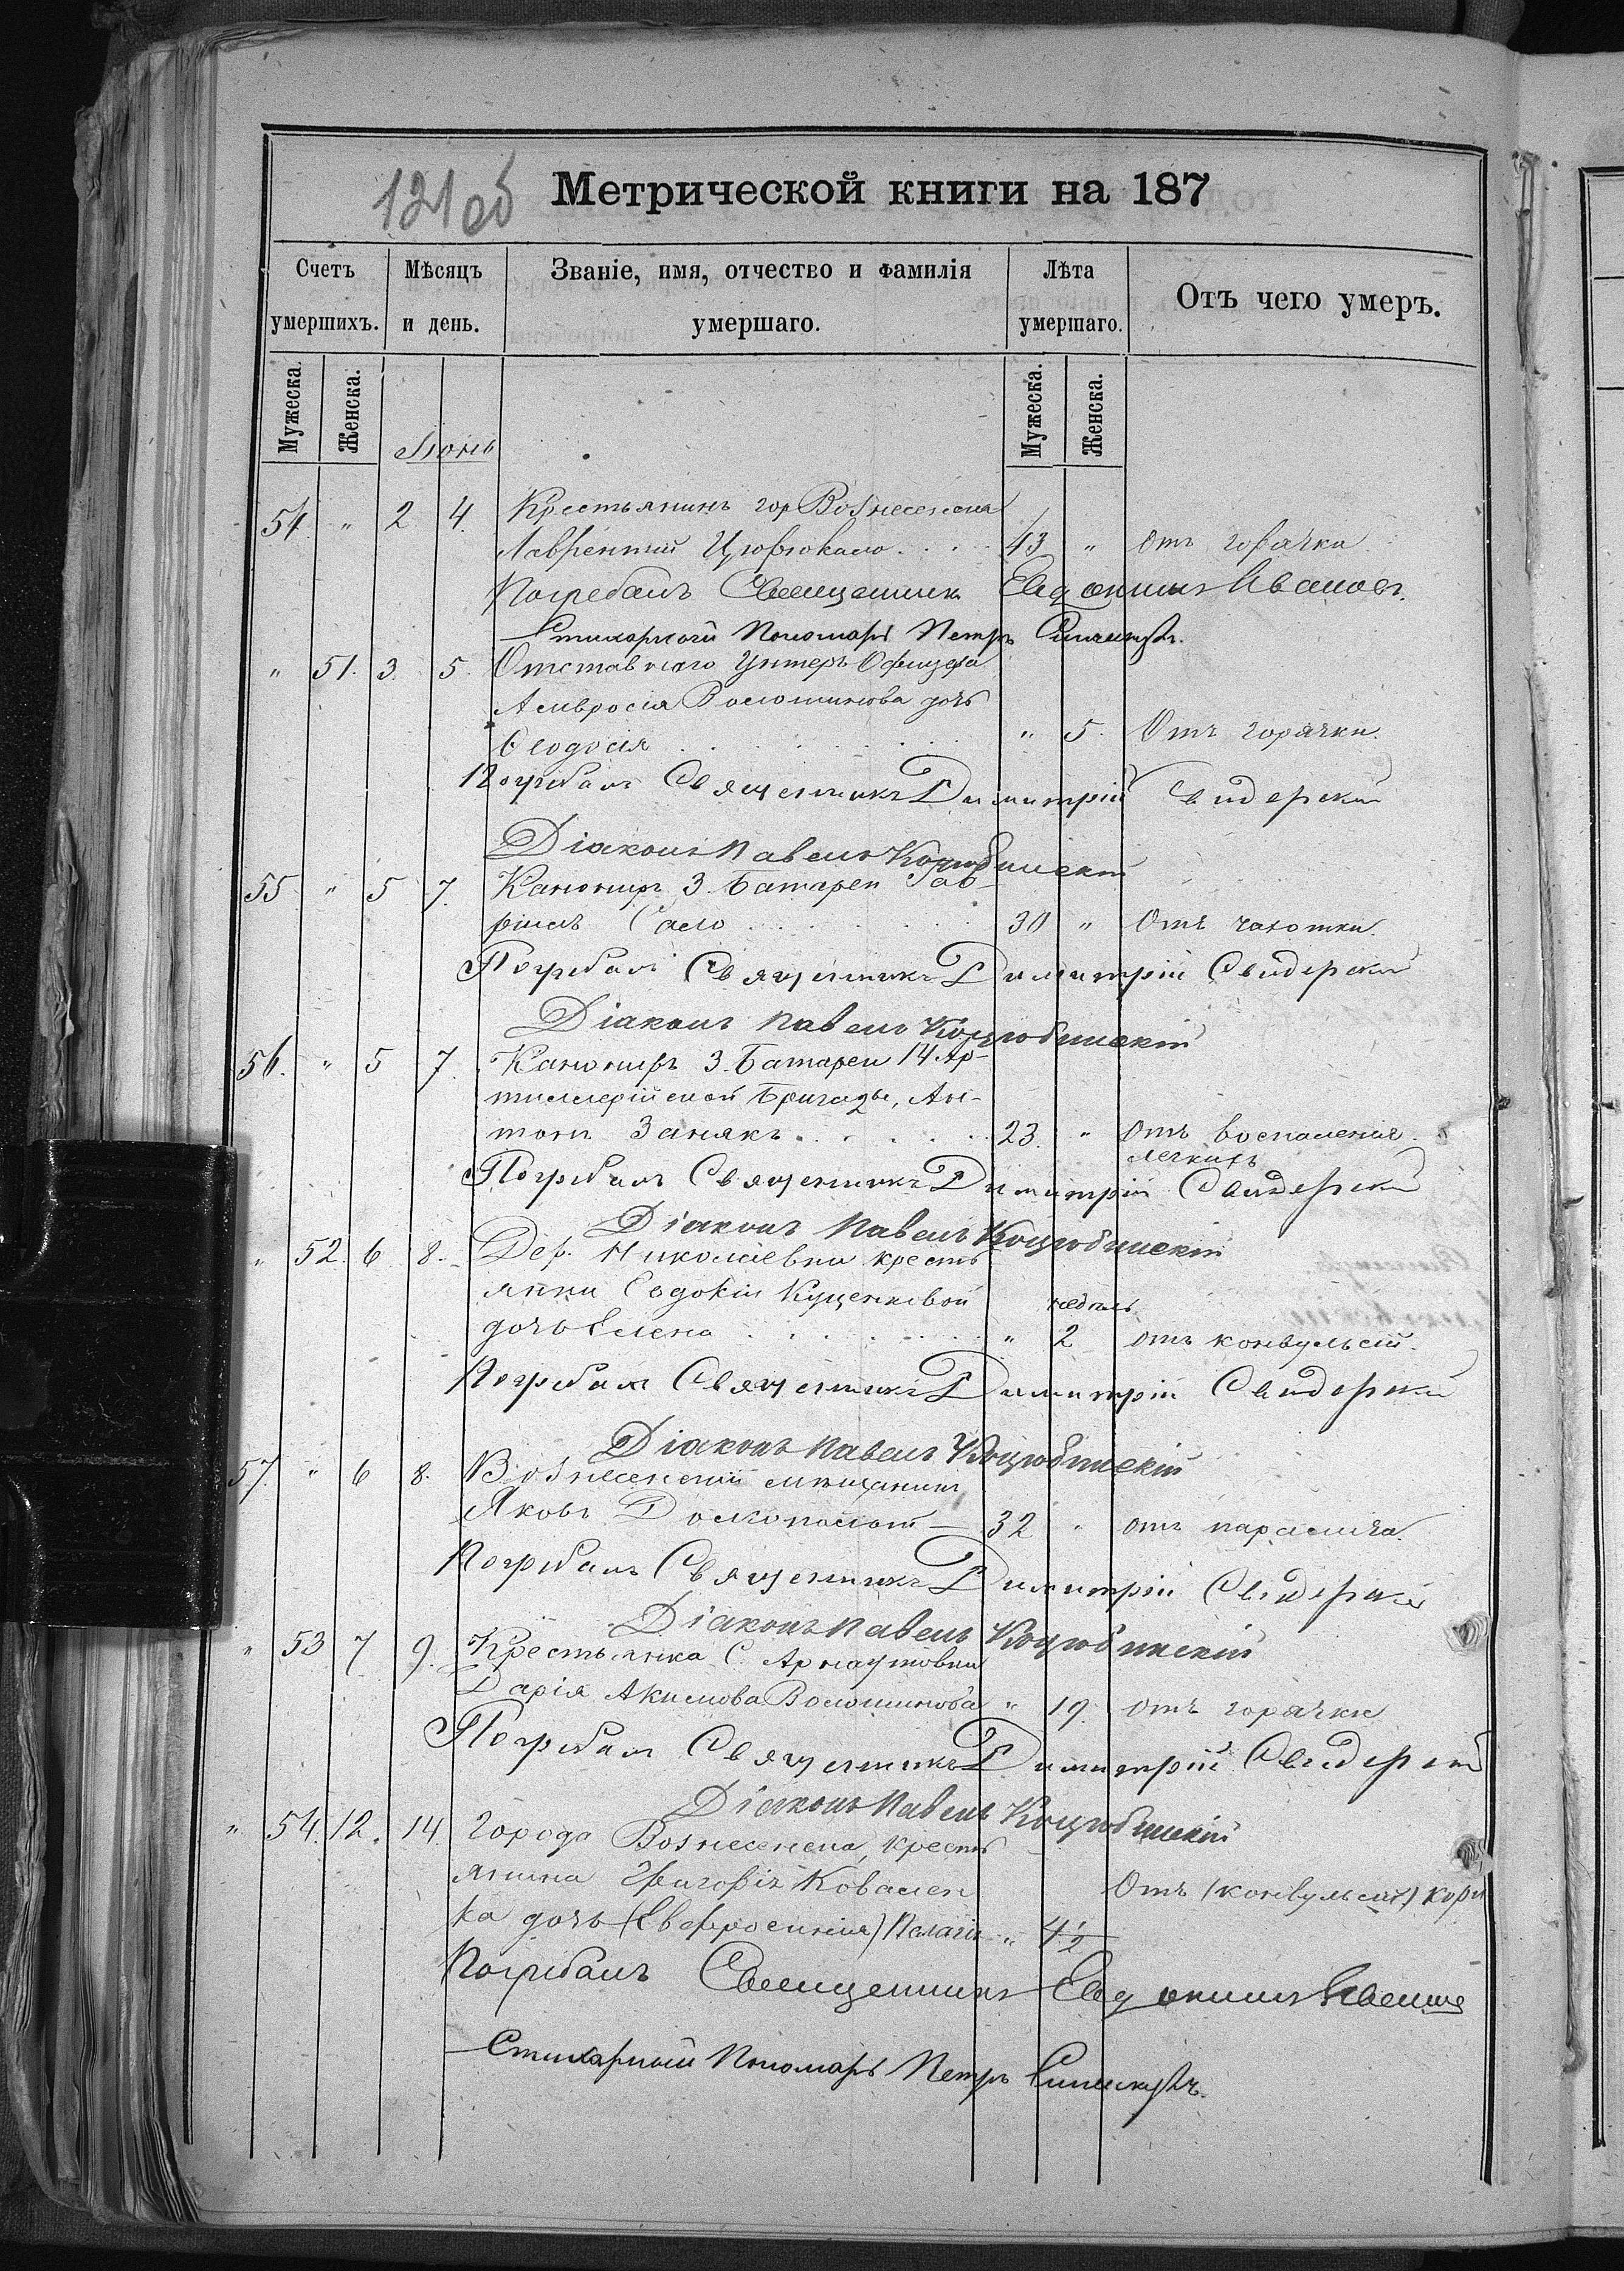 121об
Метрической книги на 187
Счетъ умершихъ.
Мѣсяцъ и день.
Званіе, имя, отчество и фамилія умершаго.
Лѣта умершаго.
Отъ чего умеръ.
Мужеска. Женска. Мужеска. Женска.
Іюнь
54 " 2 4. Крестьянинъ гор Вознесенска
Лаврентій 43 " Отъ горячки
Погребалъ Священникъ Евдокимъ Ивановъ.
Стихарный Пономарь Петръ
" 51. 3. 5. Отставнаго Унтеръ Офицера
Амвросія Волошинова дочь
Ѳеодосія " 5. Отъ горячки.
Погребалъ Священникъ Димитрій Свидерскій
Діаконъ Павелъ Коцюбинскій
55 " 5 7. Канониръ 3. Батареи Гав-
ріилъ Сало 30 " Отъ чахотки.
Погребалъ Священникъ Димитрій Свидерскій
Діаконъ Павелъ Коцюбинскій
56. " 5 7. Канониръ 3. Батареи 14 Ар-
тиллерійской Бригады, Ан-
тонъ Занякъ 23. " Отъ воспаленія
легкихъ
Погребалъ Священникъ Димитрій Свидерскій
Діаконъ Павелъ Коцюбинскій
" 52. 6 8. Дер. Николаевки кресть
янки Евдокіи Куценковой недѣль
дочь Елена " 2 отъ конвульсій.
Погребалъ Священникъ Димитрій Свидерскій
Діаконъ Павелъ Коцюбинскій
57. " 6 8. Вознесенскій мѣщанинъ
Яковъ 32 " отъ паралича
Погребалъ Священникъ Димитрій Свидерскій
Діаконъ Павелъ Коцюбинскій
" 53 7 9. Крестьянка С. Арнаутовки
Дарія Акимова Волошинова " 19. отъ горячки
Погребалъ Священникъ Димитрій Свидерскій
Діаконъ Павелъ Коцюбинскій
" 54. 12. 14. Города Вознесенска, кресть
янина Григорія Ковален
ка дочь (Евфросинія) Пелагія " 4 1/2 Отъ (конвульсій) кори
Погребалъ Священникъ Евдокимъ Ивановъ
Стихарный Пономарь Петръ